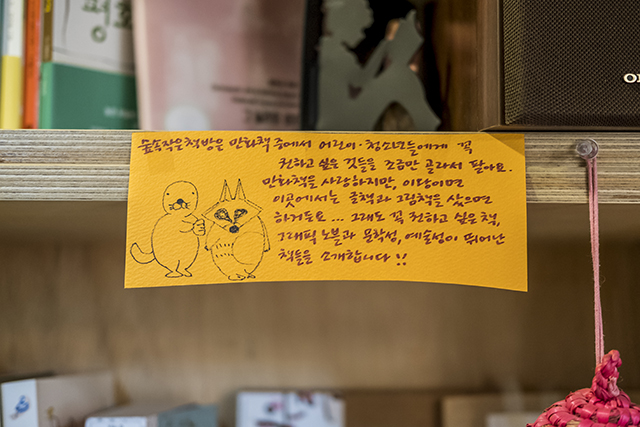 숲속작은책방은 만화책 중에서 어린이·청소년들에게 꼭
전하고 싶은 것들을 조금만 골라서 팔아요.
만화책을 사랑하지만, 이왕이면
이곳에서는 글책과 그림책을 샀으면
하거든요... 그래도 꼭 전하고 싶은 책,
그래픽 노블과 문학성, 예술성이 뛰어난
책들을 소개합니다!!